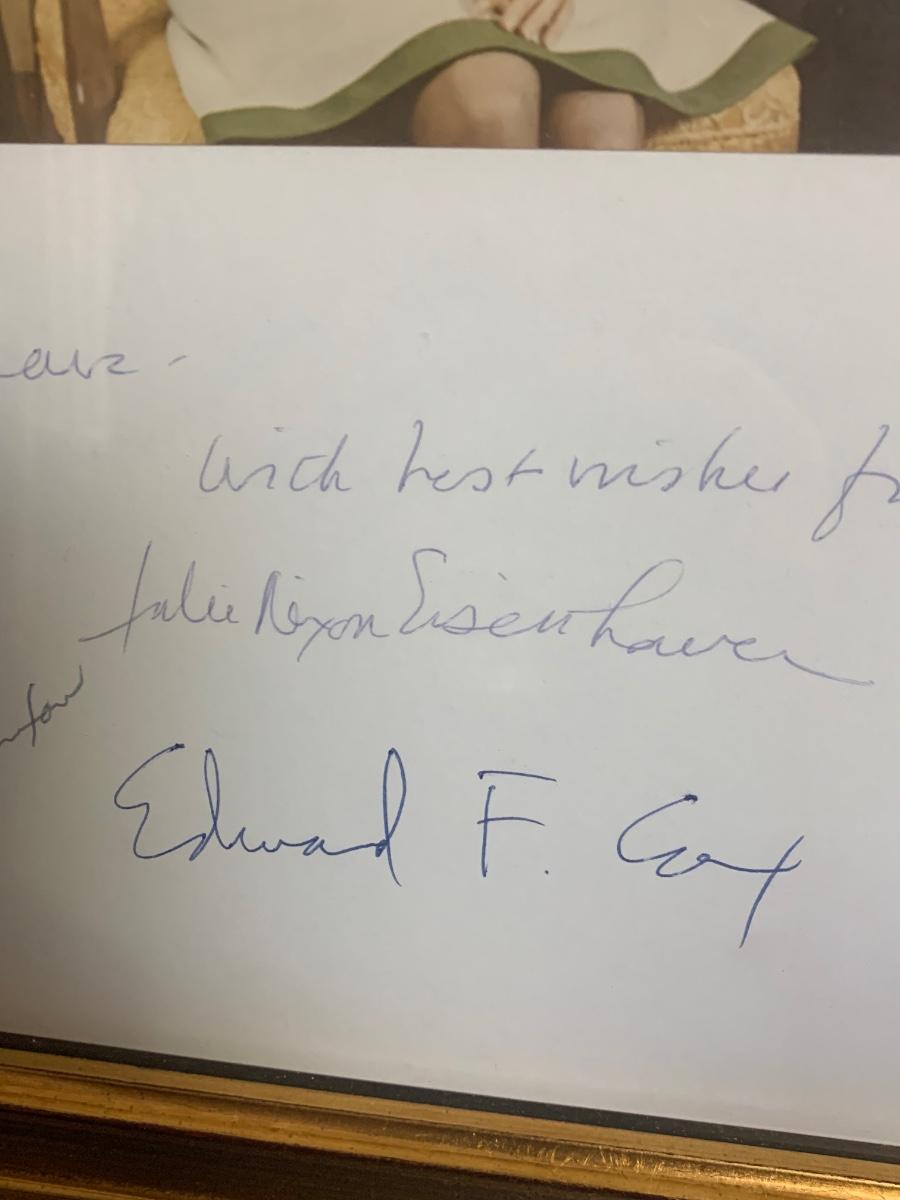 With best wishes
Julie Nixon Eisenhower
Edward F. Cox